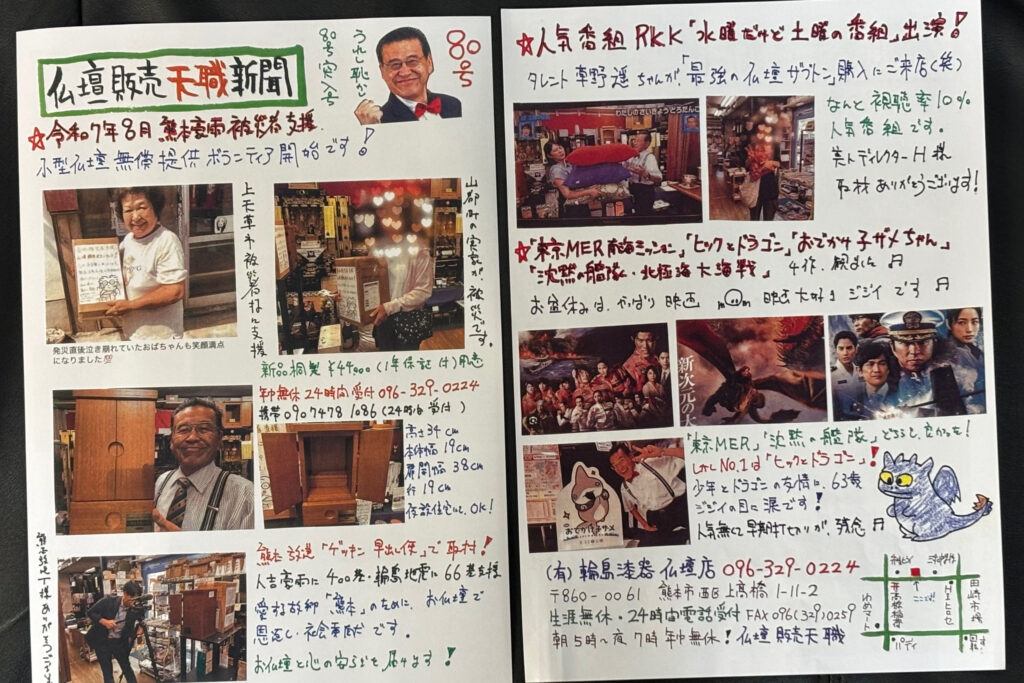 仏壇販売天職新聞
うれし恥かし
80号突入号
80号
☆令和7年8月 熊本豪雨被災者支援
小型仏壇無償提供ボランティア開始です!
上天草市被災者さん支援
山都町の実家が被災です。
発災直後泣き崩れていたおばちゃんも笑顔満点
になりました💯
新品桐製 ¥44000(1年保証付)用意
年中無休24時間受付096-329-0224
携帯 090 7478 1086(24時間受付)
高さ34cm
本体幅19cm
扉開幅38cm
行19cm
仮設住宅にOK!
熊本放送「ゲツキン早出し便」で取材!
人吉豪雨に400基・輪島地震に66基支援
愛する故郷「熊本」のために、お仏壇で
恩返し・社会奉仕です。
お仏壇と心の安らぎを届けます!
☆人気番組RKK「水曜だけど土曜の番組」出演!
タレント草野遥ちゃんが「最強の仏壇ザブトン」購入にご来店(笑)
なんと視聴率10%
人気番組です。
美人ディレクターH様
取材ありがとうございます!
☆「東京MER南海ミッション」「ヒックとドラゴン」「おでかけ子ザメちゃん」
「沈黙の艦隊・北極海大海戦」4作、観ました♬
お盆休みは、やっぱり映画 映画大好きジジイです♬
新次元の
おでかけ子ザメ
「東京MER」「沈黙の艦隊」どちらも良かった!
しかしNO.1は「ヒックとドラゴン」!
少年とドラゴンの友情に、63歳
ジジイの目に涙です!
人気無くて早期打ち切りが、残念♬
(有)輪島漆器仏壇店 096-329-0224
〒860-0061 熊本市西区上高橋1-11-2
生涯無休・24時間電話受付FAX096(329)0259
朝5時~夜7時年中無休!仏壇販売天職
田崎市場